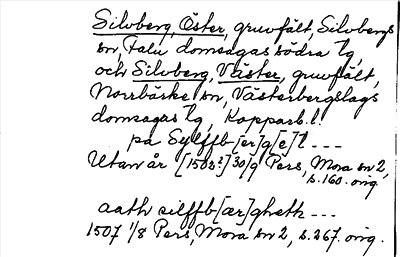 Silvberg, Öster, gruvfält, Silvbergs
sn, Falu domsagas södra tg,
och Silvberg, Väster, gruvfält,
Norrbärke sn, Västerbergslags
domsagas tg, Kopparb.l.
på Sylffb[er]g[e]t ---
Utan år [1502?] 30/9 Pers, Mora sn 2,
s.160. orig.
aath silffb[ær]gheth ---
1507 1/8 Pers, Mora sn 2, s.267. orig.